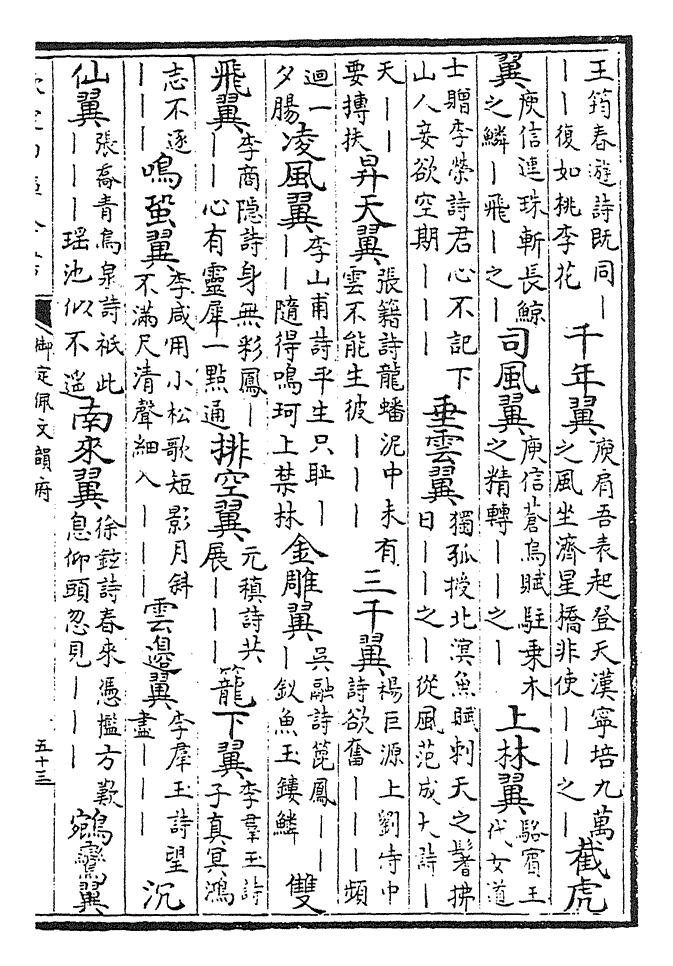 王筠春遊詩既同丨
丨丨復如桃李花
千年翼
庾肩吾表起登天漢寧培九萬
之風坐濟星橋非使丨丨丨之丨
截虎
翼
庾信連珠斬長鯨
之鱗丨丨飛丨之丨
司風翼
庾信蒼烏賦駐乗木
之精轉丨丨之丨
上林翼
駱賓王
代女道
士贈李榮詩君心不記下
山人妾欲空期丨丨丨
垂雲翼
獨孤授北溟魚賦刺天之鬐拂
日丨丨丨之丨從風范成大詩丨
天丨丨
要摶扶
昇天翼
張籍詩龍蟠泥中未有
雲不能生彼丨丨丨
三千翼
楊巨源上劉侍中
詩欲奮丨丨丨頻
迴一
夕腸
凌風翼
李山甫詩平生只耻丨
丨丨隨得鳴珂上禁林
金雕翼
吳融詩篦鳳丨丨
丨釵魚玉鏤鱗
雙
飛翼
李商隱詩身無彩鳳丨
丨丨心有靈犀一點通
排空翼
元稹詩共
展丨丨丨
籠下翼
李羣玉詩
子真冥鴻
志不逐
丨丨丨
鳴蛩翼
李咸用小松歌短影月斜
不滿尺清聲細入丨丨丨
雲邊翼
李羣玉詩望
盡丨丨丨
沉
仙翼
張喬青鳥泉詩祗此
丨丨丨瑶池似不遥
南來翼
徐鉉詩春來憑檻方歎
息仰頭忽見丨丨丨
鵷鸞翼
御定佩文韻府
五十三